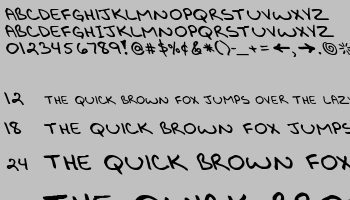 ABCDEFGHIJKLMNOPQRSTUVWXYZ
ABCDEFGHIJKLMNOPQRSTUVWXYZ
0123456789!@#$%¢&*()-_+=←,→.
12 THE QUICK BROWN FOX JUMPS OVER THE LAZ
18 THE QUICK BROWN FOX JUMPS
24 THE QUICK BROWN FOX